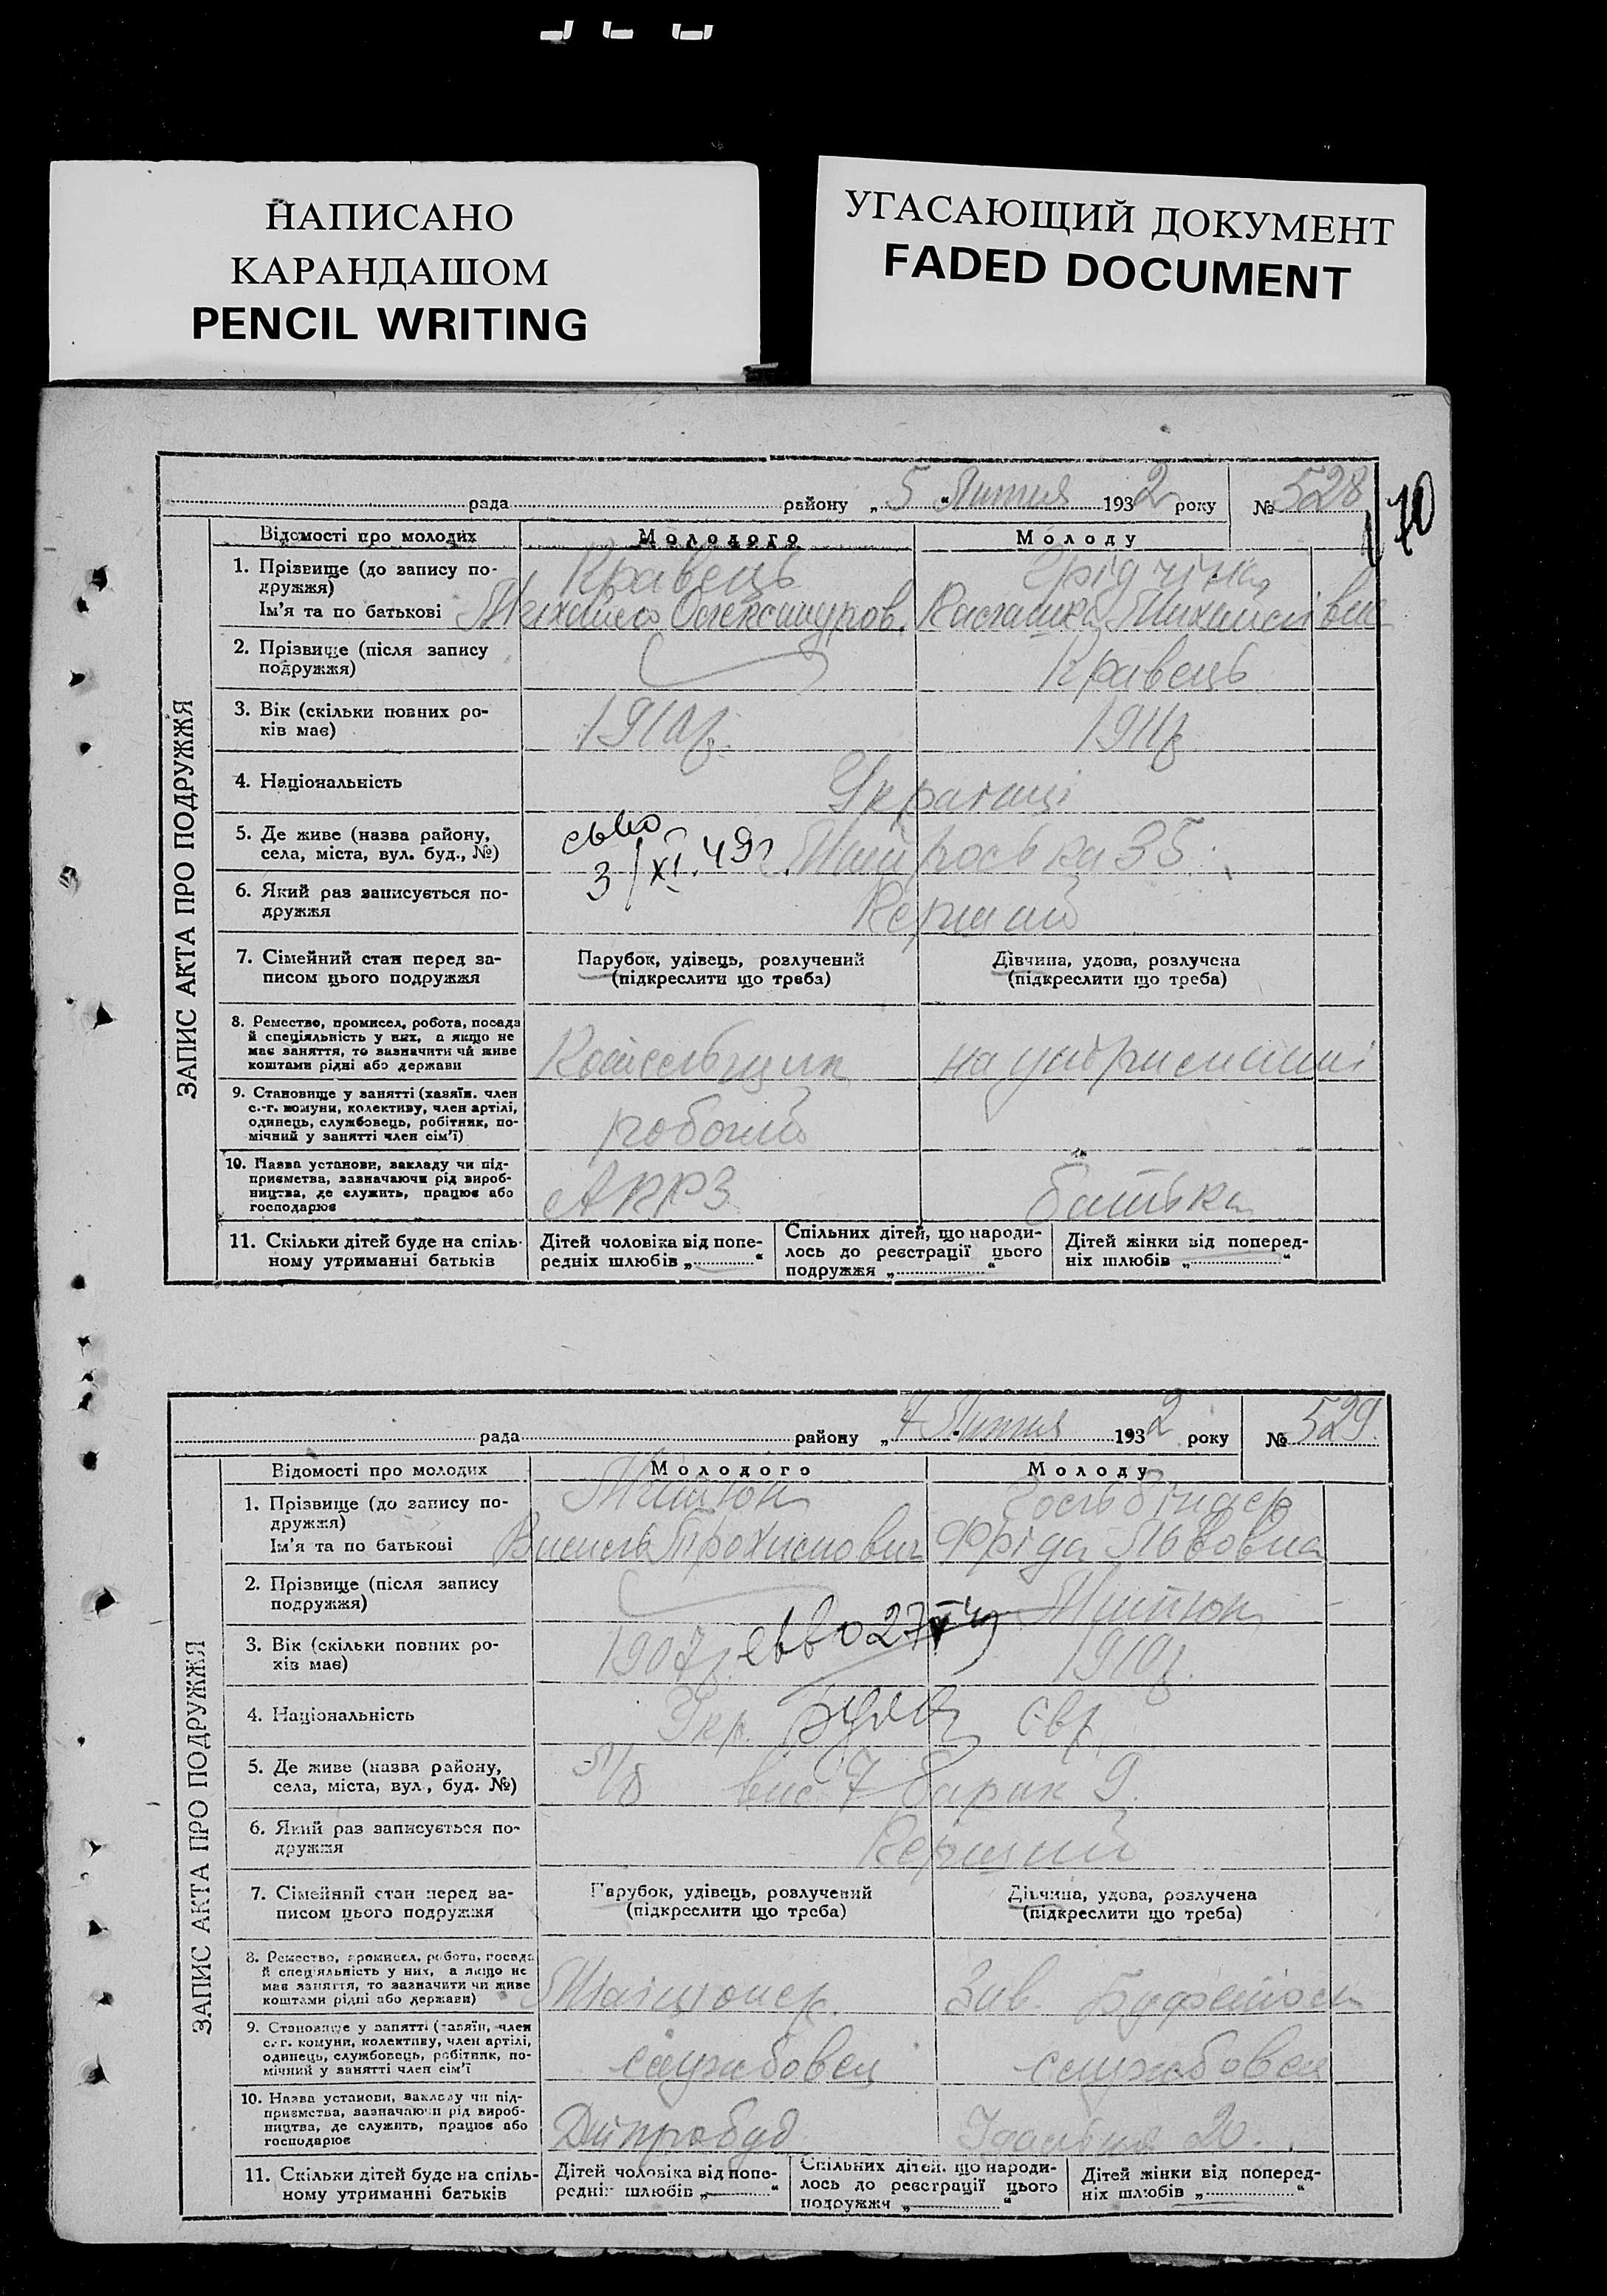 НАПИСАНО
КАРАНДАШОМ
PENCIL WRITING
УГАСАЮЩИЙ ДОКУМЕНТ
FADED DOCUMENT
70
ЗАПИС АКТА ПРО ПОДРУЖЖЯ
рада району „5" Лютия 1932 року № 528
Відомості про молодих Молодого Молоду
1. Прізвище (до запису по-
дружжя) Кравець
Ім'я та по батькові Михайло Олександров.
2. Прізвище (після запису
подружжя) Кравець
3. Вік (скільки повних ро-
ків має) 1910р. 1911р
4. Національність Українці
5. Де живе (назва району,
села, міста, вул. буд., №) 35
3/XI.49г.
6. Який раз записується по-
дружжя Перший
7. Сімейний стан перед за-
писом цього подружжя
Парубок, удівець, розлучений
(підкреслити що треба)
Дівчина, удова, розлучена
(підкреслити що треба)
8. Ремество, промисел, робота, посада
й спеціяльність у них, а якщо не
має заняття, то зазначити чи живе
коштами рідні або держави Котельщик на утриманні
9. Становище у занятті (хазяїн. член
с.-г. комуни, колективу, член артілі,
одинець, службовець, робітник, по-
мічний у занятті член сім'ї) робочий
10. Назва установи, закладу чи під-
приємства, зазначаючи рід вироб-
ництва, де служить, працює або
господарює батька
11. Скільки дітей буде на спіль-
ному утриманні батьків
Дітей чоловіка від попе-
редніх шлюбів „ "
Спільних дітей, що народи-
лось до реєстрації цього
подружжя „ "
Дітей жінки від поперед-
ніх шлюбів „ "
ЗАПИС АКТА ПРО ПОДРУЖЖЯ
рада району „7 Лютия 1932 року № 529
Відомості про молодих Молодого Молоду
1. Прізвище (до запису по-
дружжя) Гольбіндер
Ім'я та по батькові Фріда Львовна
2. Прізвище (після запису
подружжя)
3. Вік (скільки повних ро-
ків має) 1907р. 1910р.
4. Національність Укр. Євр.
5. Де живе (назва району,
села, міста, вул., буд. №) вис 7 барак 9.
6. Який раз записується по-
дружжя Перший
7. Сімейний стан перед за-
писом цього подружжя
Парубок, удівець, розлучений
(підкреслити що треба)
Дівчина, удова, розлучена
(підкреслити що треба)
8. Ремество, промисел, робота, посада
й спеціяльність у них, а якщо не
має заняття, то зазначити чи живе
коштами рідні або держави) Зав. Буфетом
9. Становище у занятті (хазяїн, член
с.-г. комуни, колективу, член артілі,
одинець, службовець, робітник, по-
мічний у занятті член сім'ї службовец службовец
10. Назва установи, закладу чи під-
приємства, зазначаючи рід вироб-
ництва, де служить, працює або
господарює Дніпробуд Їдальня 20.
11. Скільки дітей буде на спіль-
ному утриманні батьків
Дітей чоловіка від попе-
редніх шлюбів „ "
Спільних дітей, що народи-
лось до реєстрації цього
подружжя „ "
Дітей жінки від поперед-
ніх шлюбів „ "